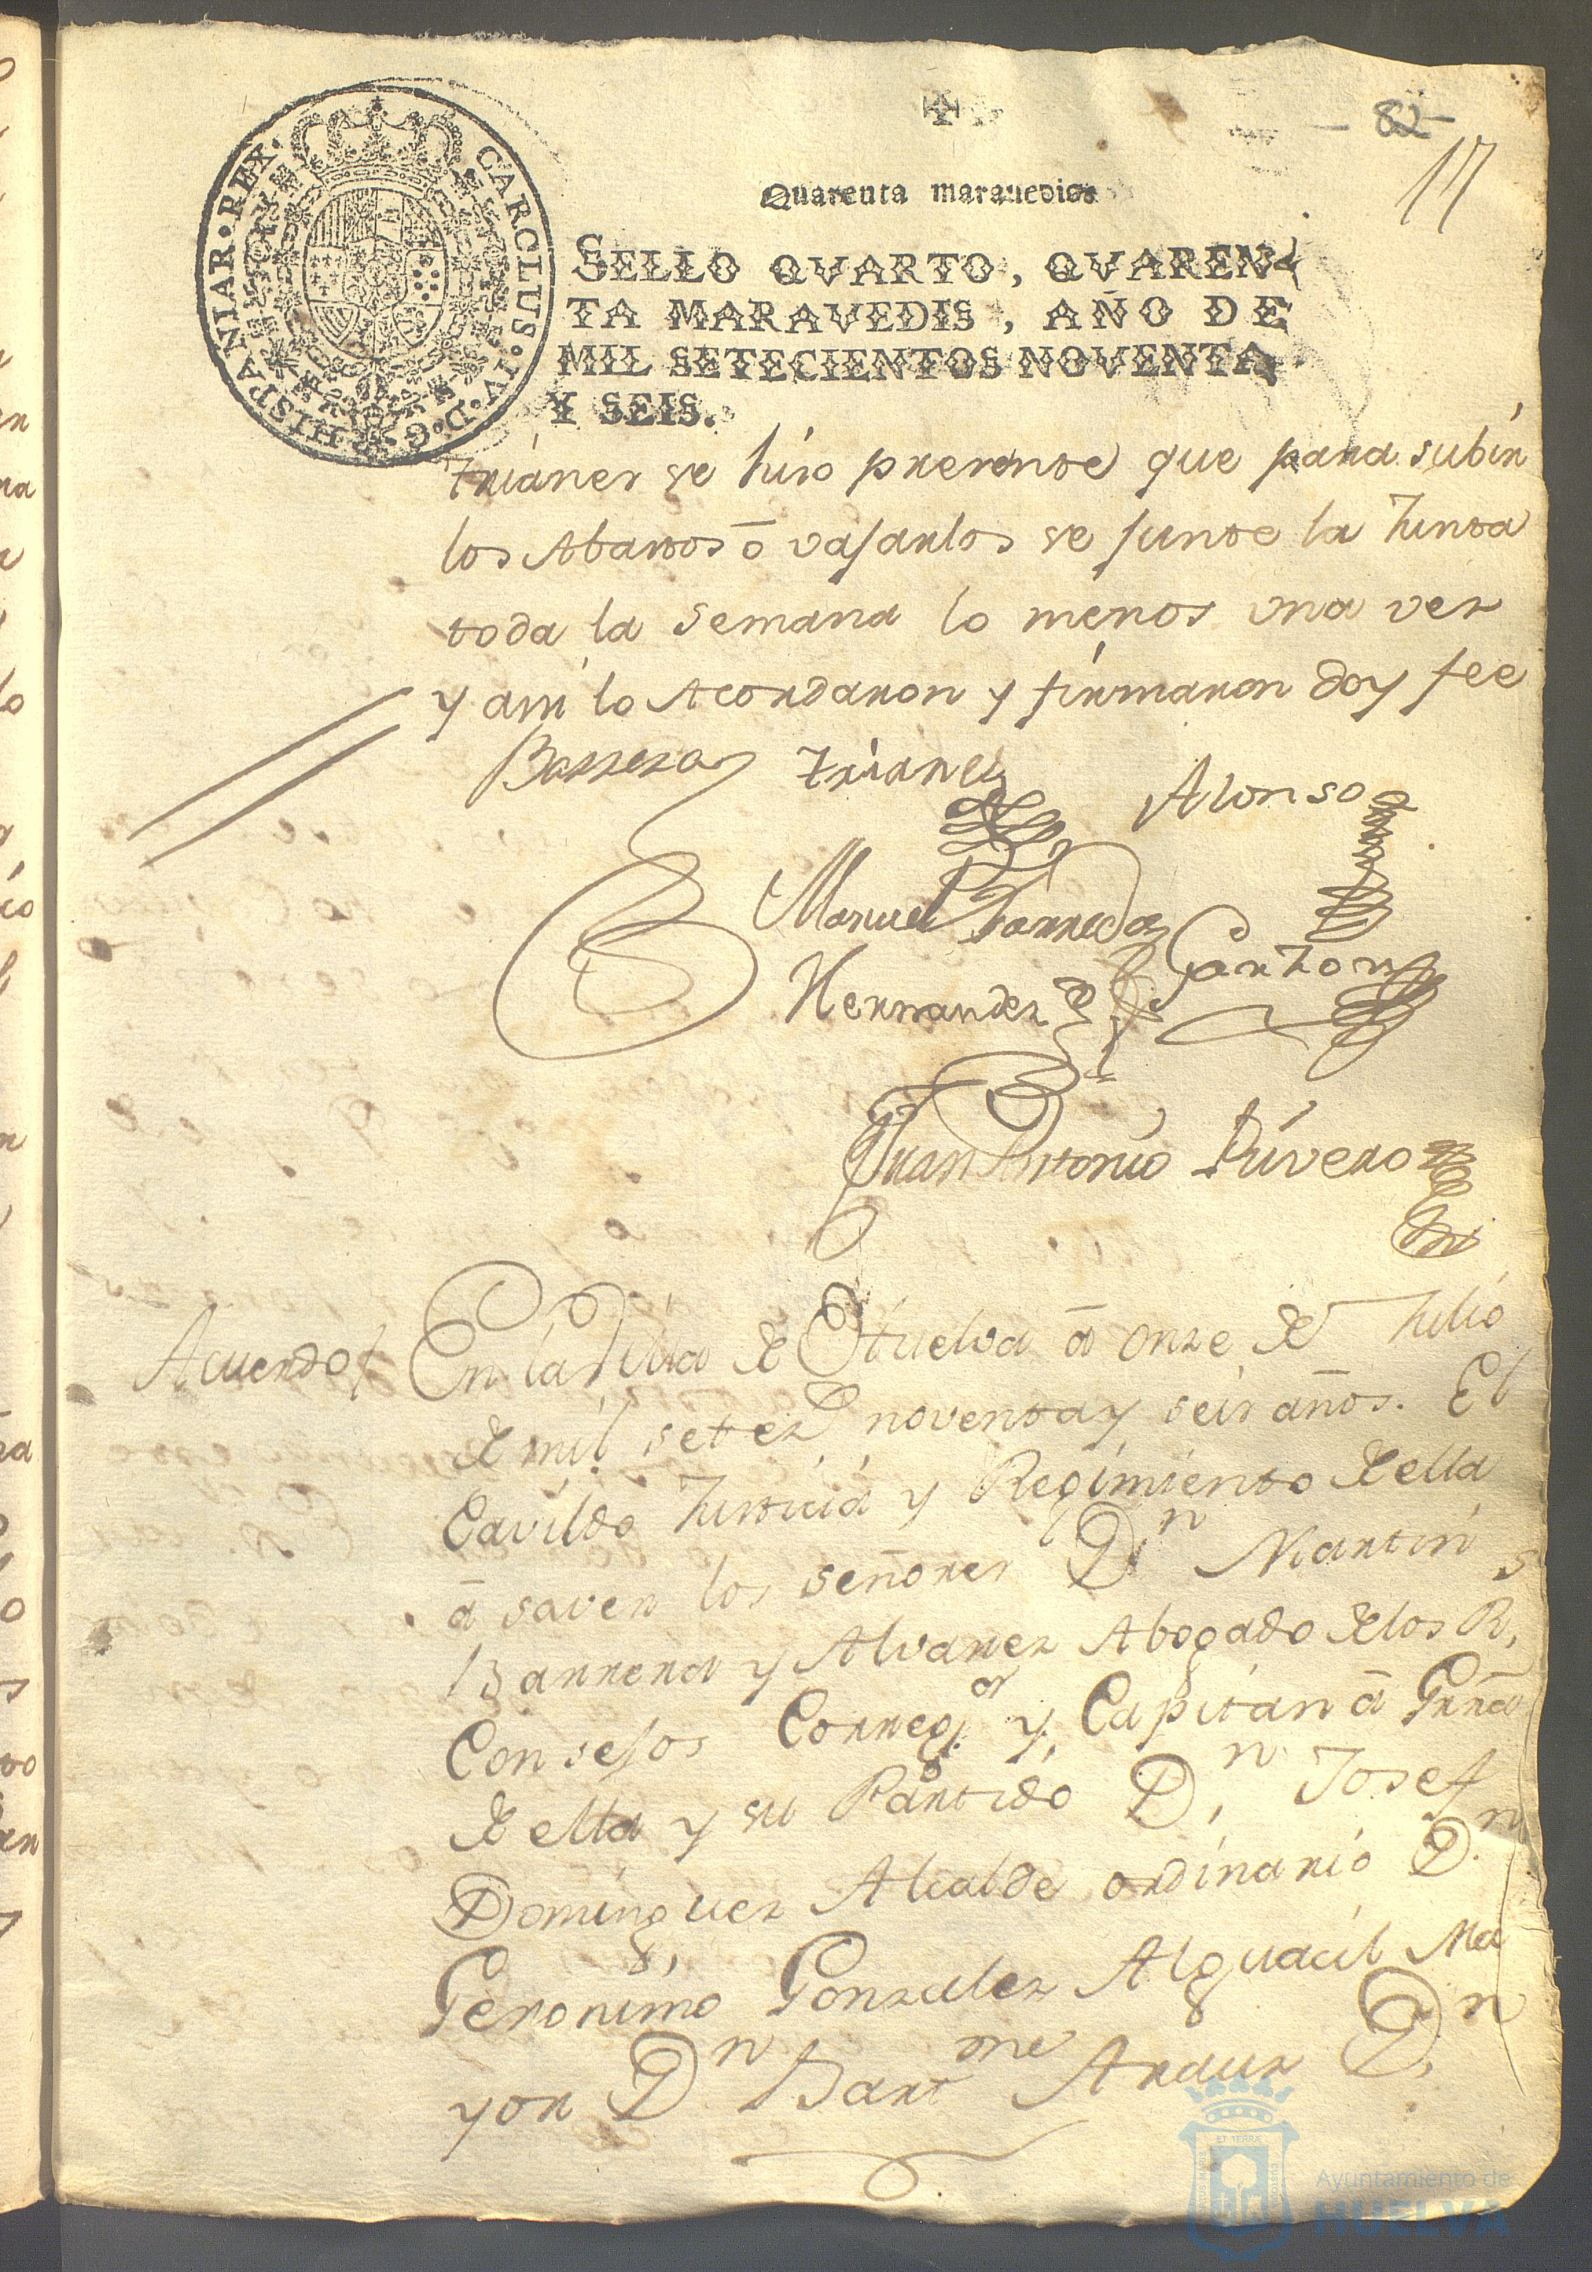 - 82 -
17
Quarenta maravedis
CAROLUS · IV · D · G · HISPANIAR · REX ·
SELLO QVARTO, QVAREN-
TA MARAVEDIS, AÑO DE
MIL SETECIENTOS NOVENTA
Y SEIS.
trianes se hiso presente que para subir
los Abastos ō vajarlos se junte la Junta
toda la semana lo menos una vez
y assi lo Acordaron y firmaron doy fee
Barrera Trianes Alonso
Manuel Barreda
Hernandez Garzon
Juan Antonio Rivero
Acuerdo En la Villa de Huelva ā onze de Julio
de mil setez.s noventa y seis años. El
Cavildo Justicia y Regimiento de ella
ā saver los señores D.n Martin
Barrera y Alvarez Abogado de los R.s
Consejos Correg.or y Capitan ā Grrã
de ella y su Partido D.n Josef
Dominguez Alcalde ordinario D.n
Geronimo Gonzalez Alguacil Ma
yor D.n Bart.me Arauz D.n
Ayuntamiento de
HUELVA